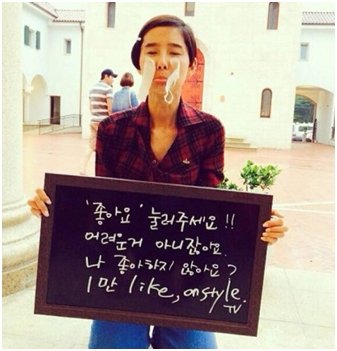 '좋아요' 눌러주세요!!
어려운거 아니잖아요.
나 좋아하지 않아요?
1만 like, onstyle.
TV